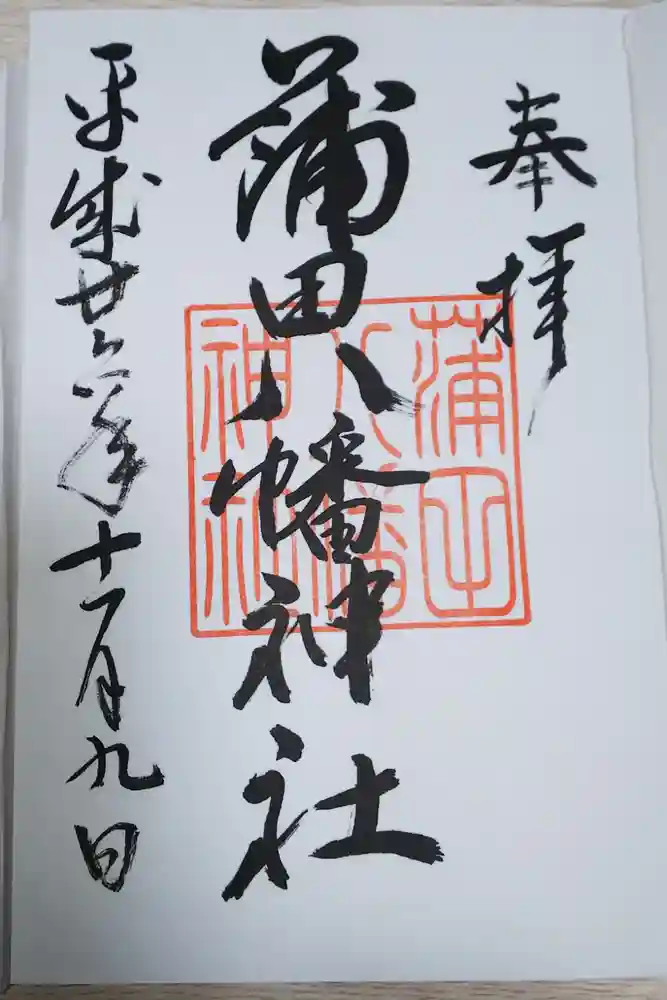 奉拝
蒲田八幡神社
蒲田八幡神社
平成廿六年十一月九日